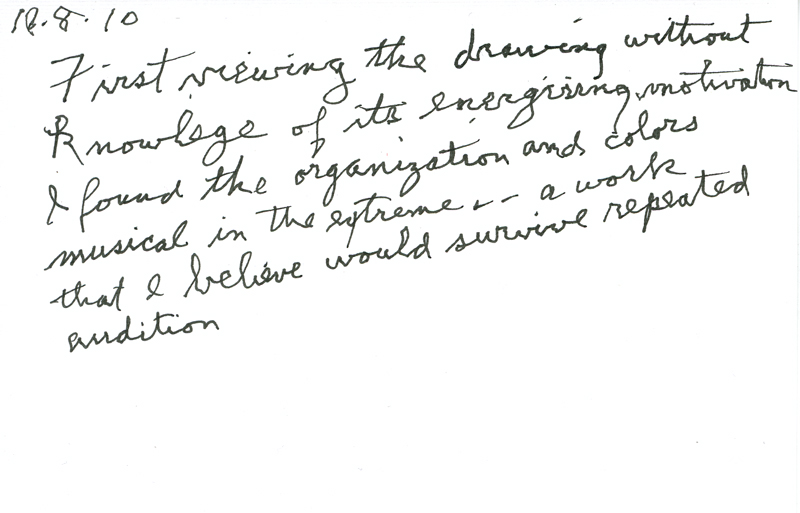 12.8.10
First viewing the drawing without
Knowledge of its energizing motivation
I found the organization and colors
musical in the extreme -- a work
that I believe would survive repeated
audition